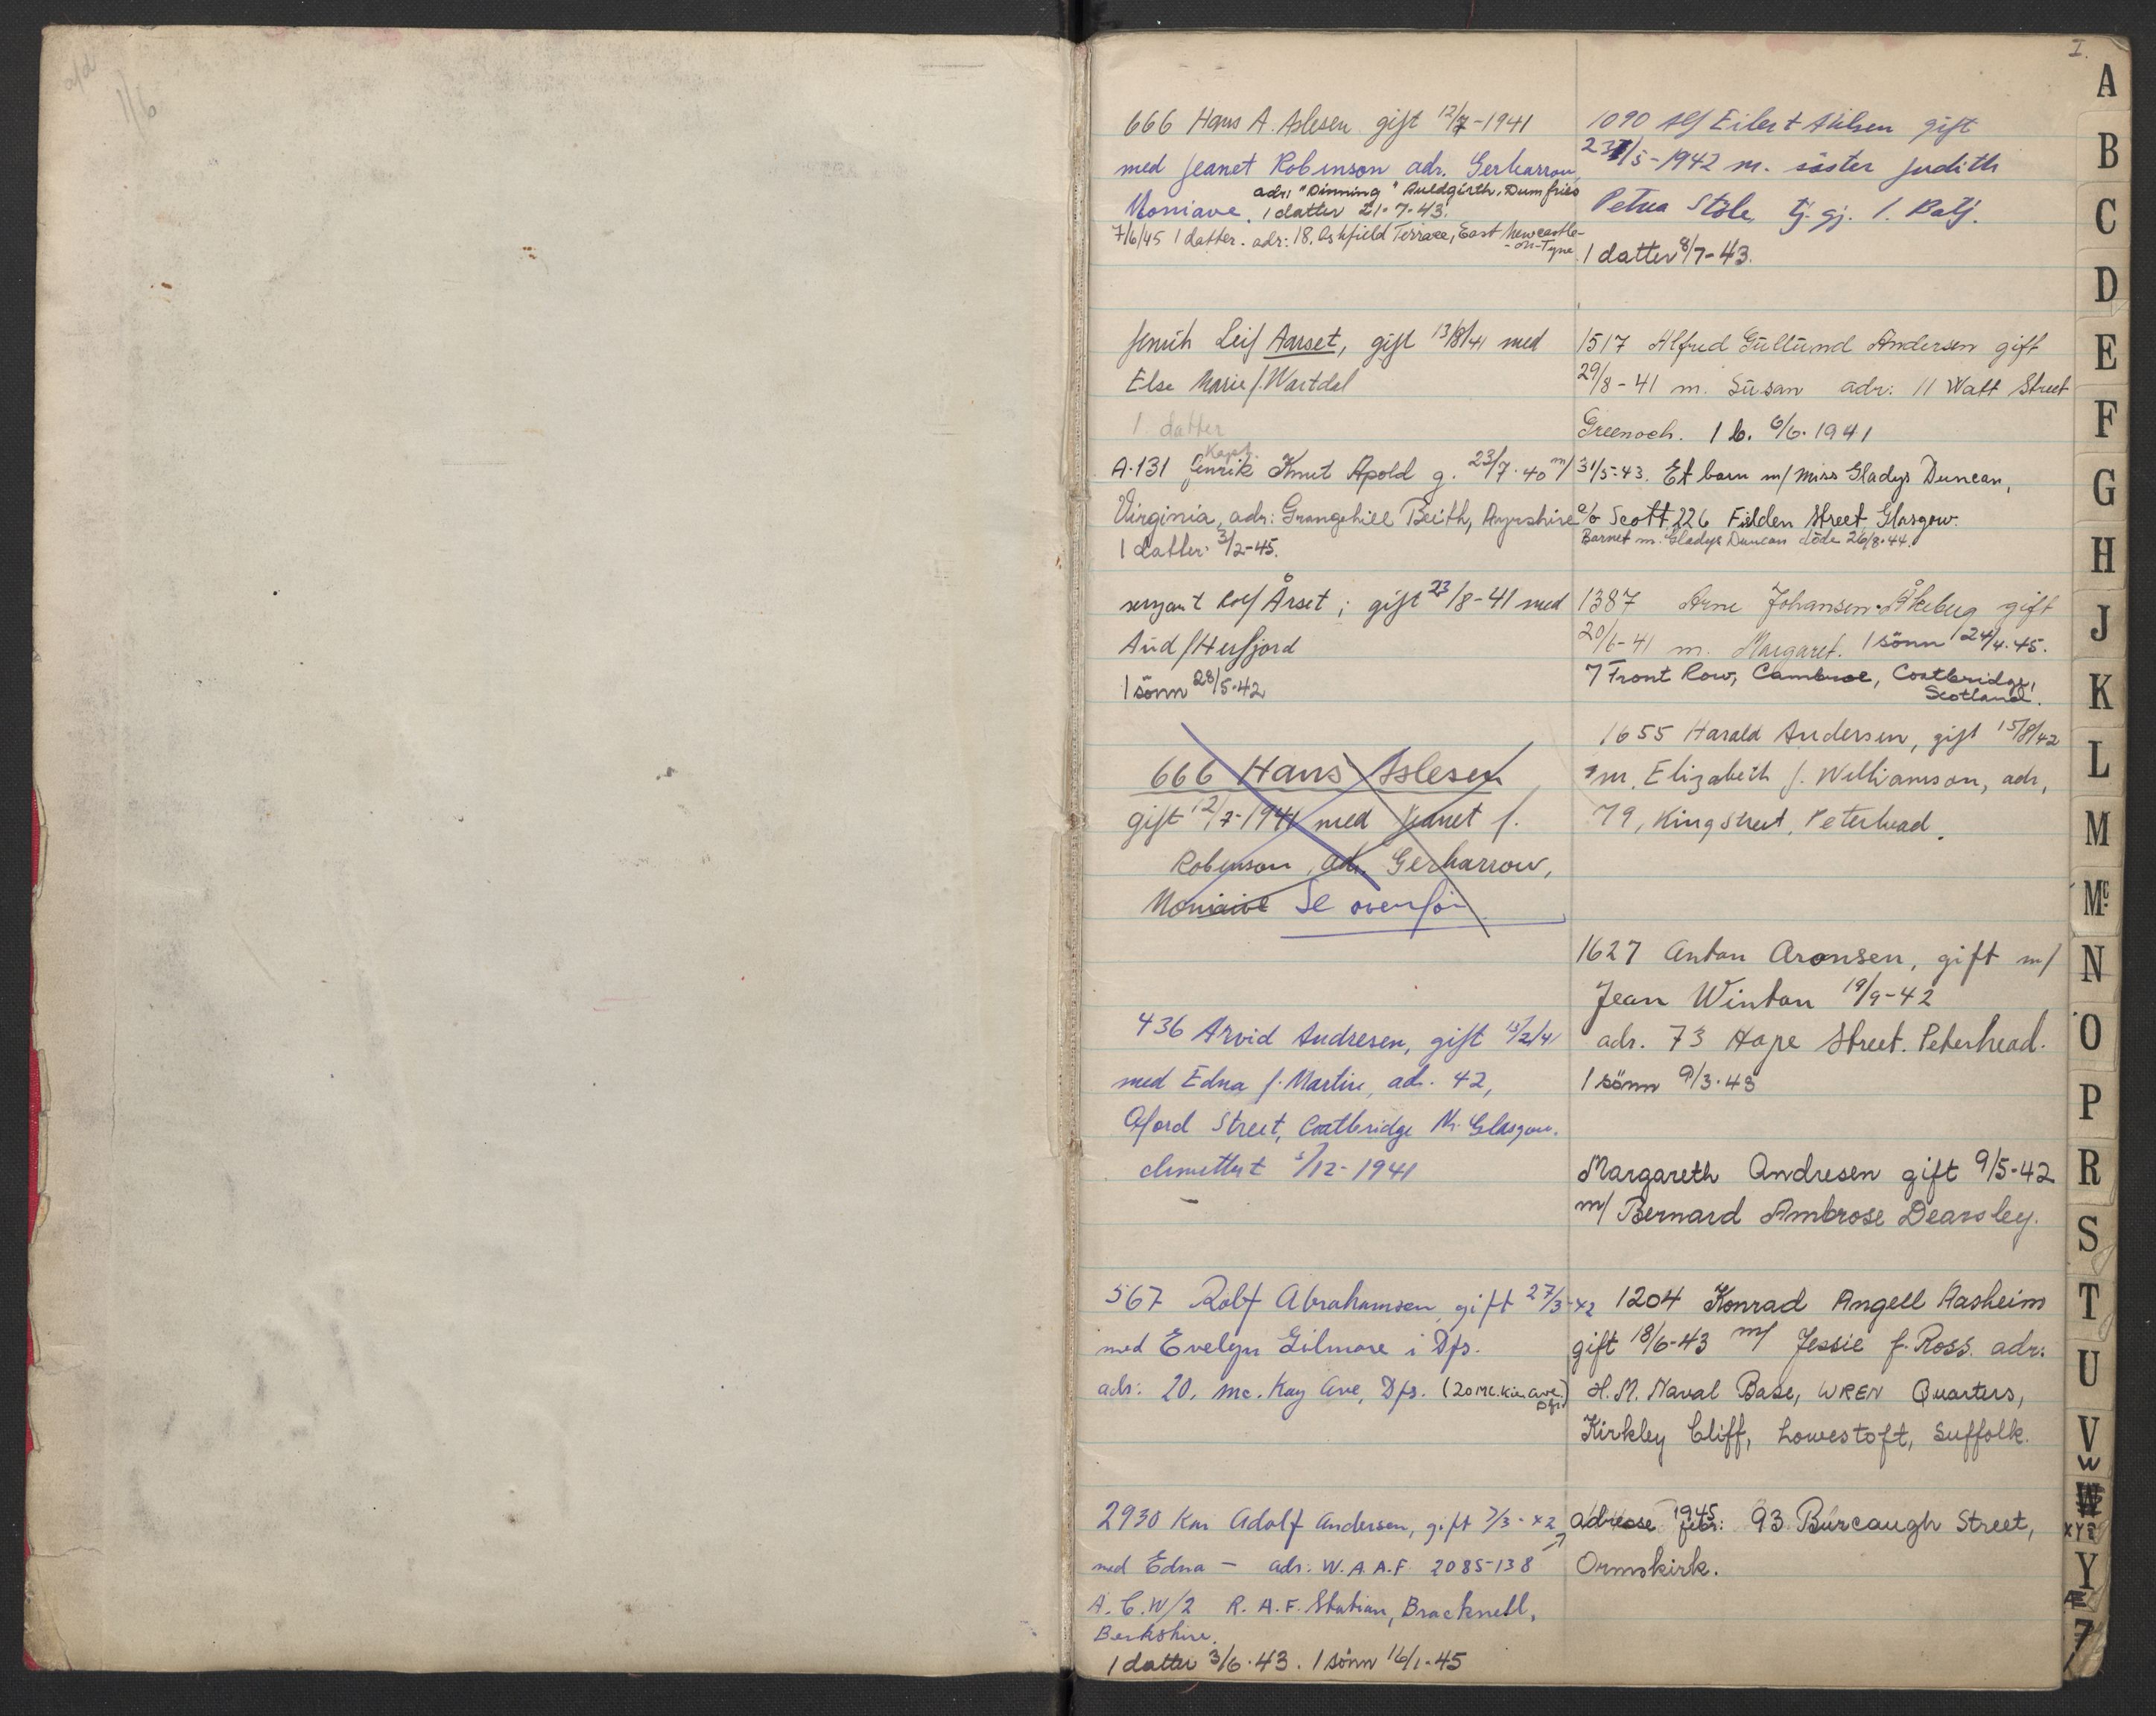 1/6
I.
666 Hans A. Aslesen gift 12/7-1941
med Jeanet Robinson adr. Gerharrow,
adr: "Dinning" Auldgirth, Dumfries
Moniave. 1 datter 21-7-43.
7/6/45 1 datter. adr: 18. Ashfield Terrace, East Newcastle-
-on-Tyne
fenrik Leif Aarset, gift 13/8/41 med
Else Marie f. Wartdal
1 datter
Kapt.
A-131 fenrik Knut Apold g. 23/7-40 m/
Virginia, adr: Grangehill Beith, Ayrshire
1 datter 3/2-45.
serjant Rolf Årset; gift 23/8-41 med
Aud f. Herfjord
1 sönn 28/5-42
666 Hans Aslesen
gift 12/7-1941 med Jeanet f.
Robinson, adr. Gerharrow,
Moniaive Se ovenfor
436 Arvid Andresen, gift 15/2/41
med Edna f. Martin, adr. 42,
Oford Street, Coatbridge Nr. Glasgow.
dimittert 5/12-1941
567 Rolf Abrahamsen, gift 27/3-42
med Evelyn Gilmore i Dfs.
adr: 20, Mc. Kay Ave, Dfs. (20 Mc. Kie Ave. Dfs.)
2930 Kar Adolf Andersen, gift 7/3-42
med Edna — adr: W.A.A.F. 2085138
A.C.W/2 R.A.F. Station, Bracknell,
Berkshire.
1 datter 3/6-43. 1 sönn 16/1-45
1090 Alf Eilert Ahlsen gift
23/5-1942 m. söster Judith
Petra Stöle, tj. gj. 1. Batj.
1 datter 8/7-43.
1517 Alfred Gullund Andersen gift
29/8-41 m. Susan adr: 11 Watt Street
Greenock. 1 b. 6/6-1941
31/5-43. Et barn m/ Miss Gladys Duncan,
c/o Scott, 226 Fielden Street, Glasgow.
Barnet m. Gladys Duncan döde 26/8-44.
1387 Arne Johansen-Åkeberg gift
20/6-41 m. Margaret. 1 sönn 24/4-45.
7 Front Row, Cambroe, Coatbridge,
Scotland.
1655 Harald Andersen, gift 15/8/42
m. Elizabeth f. Williamson, adr,
79, King Street, Peterhead.
1627 Anton Aronsen, gift m/
Jean Winton 19/9-42
adr. 73 Hope Street. Peterhead.
1 sönn 9/3-43
Margareth Andresen gift 9/5-42
m/ Bernard Ambrose Dearsley.
1204 Konrad Angell Aasheim
gift 18/6-43 m/ Jessie f. Ross. adr:
H.M. Naval Base, WREN Quarters,
Kirkley Cliff, Lowestoft, Suffolk.
adresse 1945 febr: 93 Burcaugh Street,
Ormskirk.
A
B
C
D
E
F
G
H
J
K
L
M
Mc
N
O
P
R
S
T
U
V
W
W
XYZ
Y
Æ